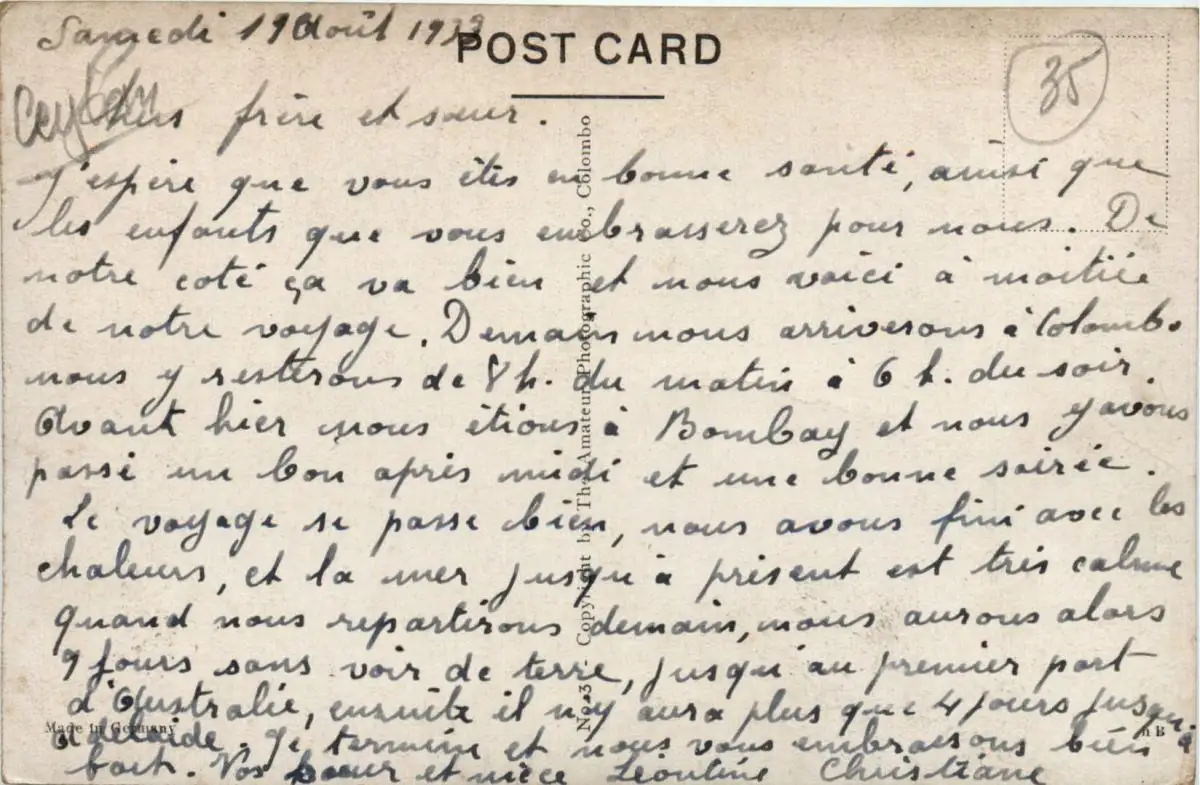 Samedi 19 Août 1933
POST CARD
35
Ceylan
Chers frère et sœur.
J'espère que vous êtes en bonne santé, ainsi que
les enfants que vous embrasserez pour nous. De
notre coté ça va bien et nous voici à moitiée
de notre voyage. Demain nous arriverons à Colombo
nous y resterons de 8 h. du matin à 6 h. du soir.
Avant hier nous étions à Bombay et nous y avons
passé un bon après midi et une bonne soirée.
Le voyage se passe bien, nous avons fini avec les
chaleurs, et la mer jusqu'à présent est très calme
quand nous repartirons demain, nous aurons alors
9 jours sans voir de terre, jusqu'au premier port
d'Australie, ensuite il n'y aura plus que 4 jours jusqu'à
Adelaide. Je termine et nous vous embrassons bien
fort. Vos sœur et nièce Léontine Christiane
No. 3. Copyright by The Amateur Photographic Co., Colombo
Made in Germany